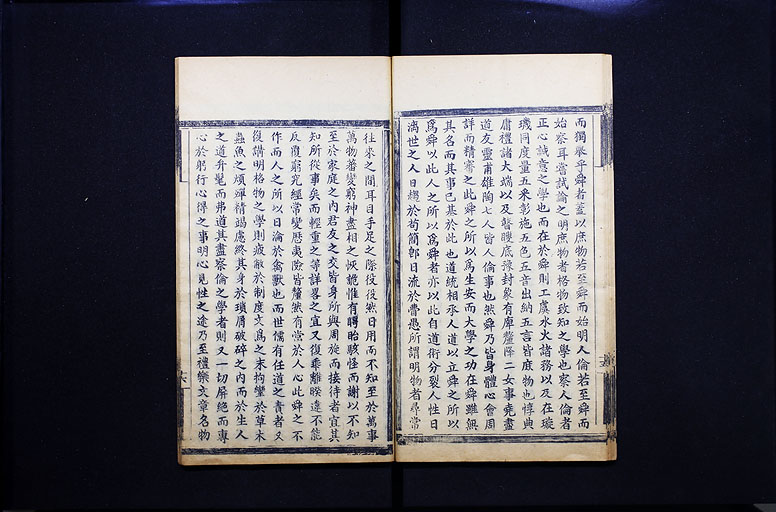 而獨舉乎舜者蓋以庶物若至舜而始明人倫若至舜而
始察耳嘗試論之明庶物者格物致知之學也察人倫者
正心誠意之學也而在於舜則工虞水火諸務以及在璇
璣同度量五采彰施五色五言出納五言皆庶物也惇典
庸禮諸大端以及瞽瞍底豫封象有庳釐降二女事堯盡
道友靈甫雄陶七人皆人倫事也然舜乃皆身體心會周
詳而精審之此舜之所以為生安而大學之功在舜雖無
其名而其事已基於此也道統相承人道以立舜之所以
為舜以此人之所以為舜者亦以此自道術分裂人性日
漓世之人日趨於苟簡卽日流於曹愚所謂明物者尋常
往來之間耳目手足之際役役然日用而不知至於萬事
萬物蕃變窮神盡相之恢詭惟有瞤眙駭怪而謝以不知
至於家庭之內君友之交皆身所與周旋而接待者宜其
知所從事矣而輕重之等詳畧之宜又復乖離暌違不能
反覆窮究經常變歷夷險皆釐然有當於人心此舜之不
作而人之所以日淪於禽獸也而世儒有任道之責者又
復講明格物之學則疲敝於制度文為之末拘攣於草木
蟲魚之煩殫精竭慮終其身於瑣屑破碎之內而於生人
之道弁髦而弗道其盡察倫之學者則又一切屏絕而專
心於躬行心得之事明心見性之途乃至禮樂文章名物